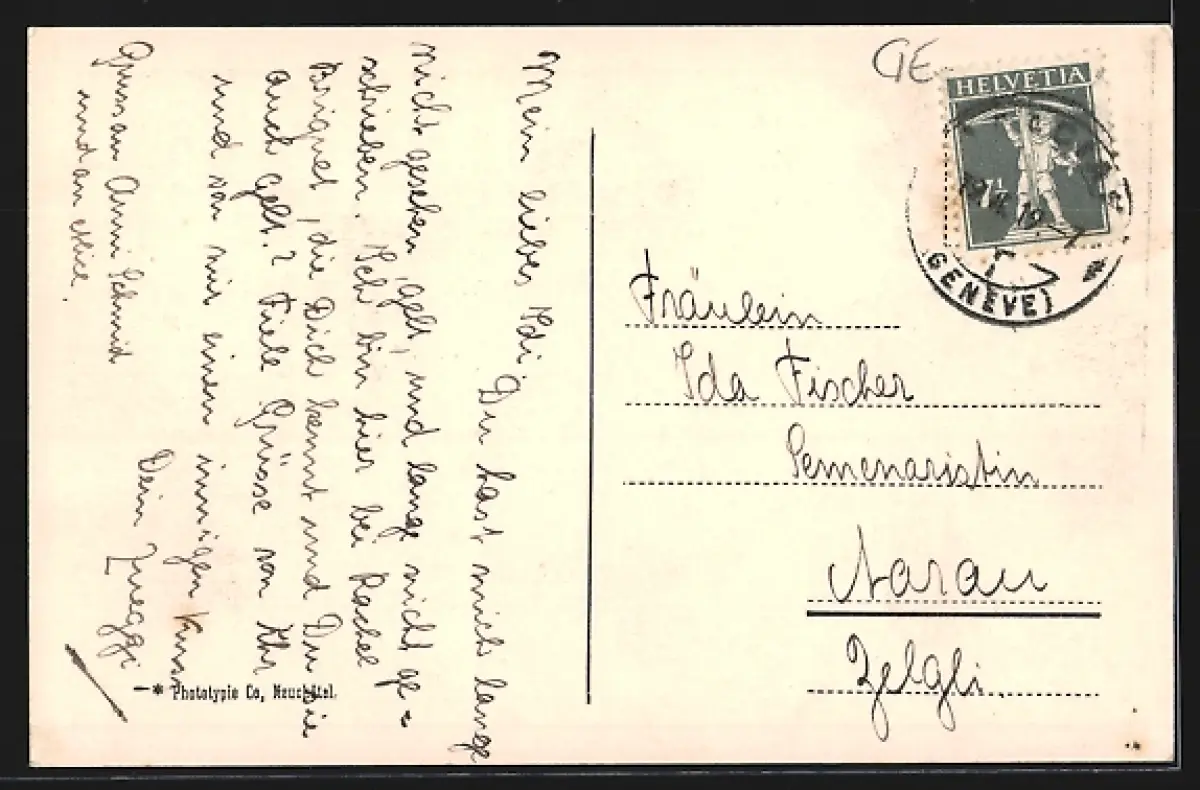 Mein liebes Idi, Du hast mich lange
nicht gesehen, gelt, und lange nicht ge=
schrieben. Ich bin hier bei Rachel
Briquet, die Dich kennt und Du sie
auch gelt? Fiele Grüsse von Ihr
und von mir einen innigen Kuss
Dein Zueggi
Gruss an Anni Schmid
und an Alice.
* Phototypie Co, Neuchâtel.
GE
HELVETIA
7½
(GENÈVE)
Fräulein
Ida Fischer
Semenaristin
Aarau
Zelgli.